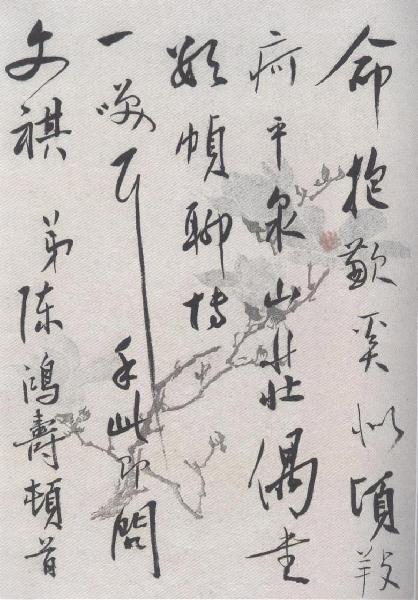 命抱歉奚似頃養
疴平泉山莊偶畫
數幀聊博
一咲耳 手此即問
文祺 弟陳鴻壽頓首